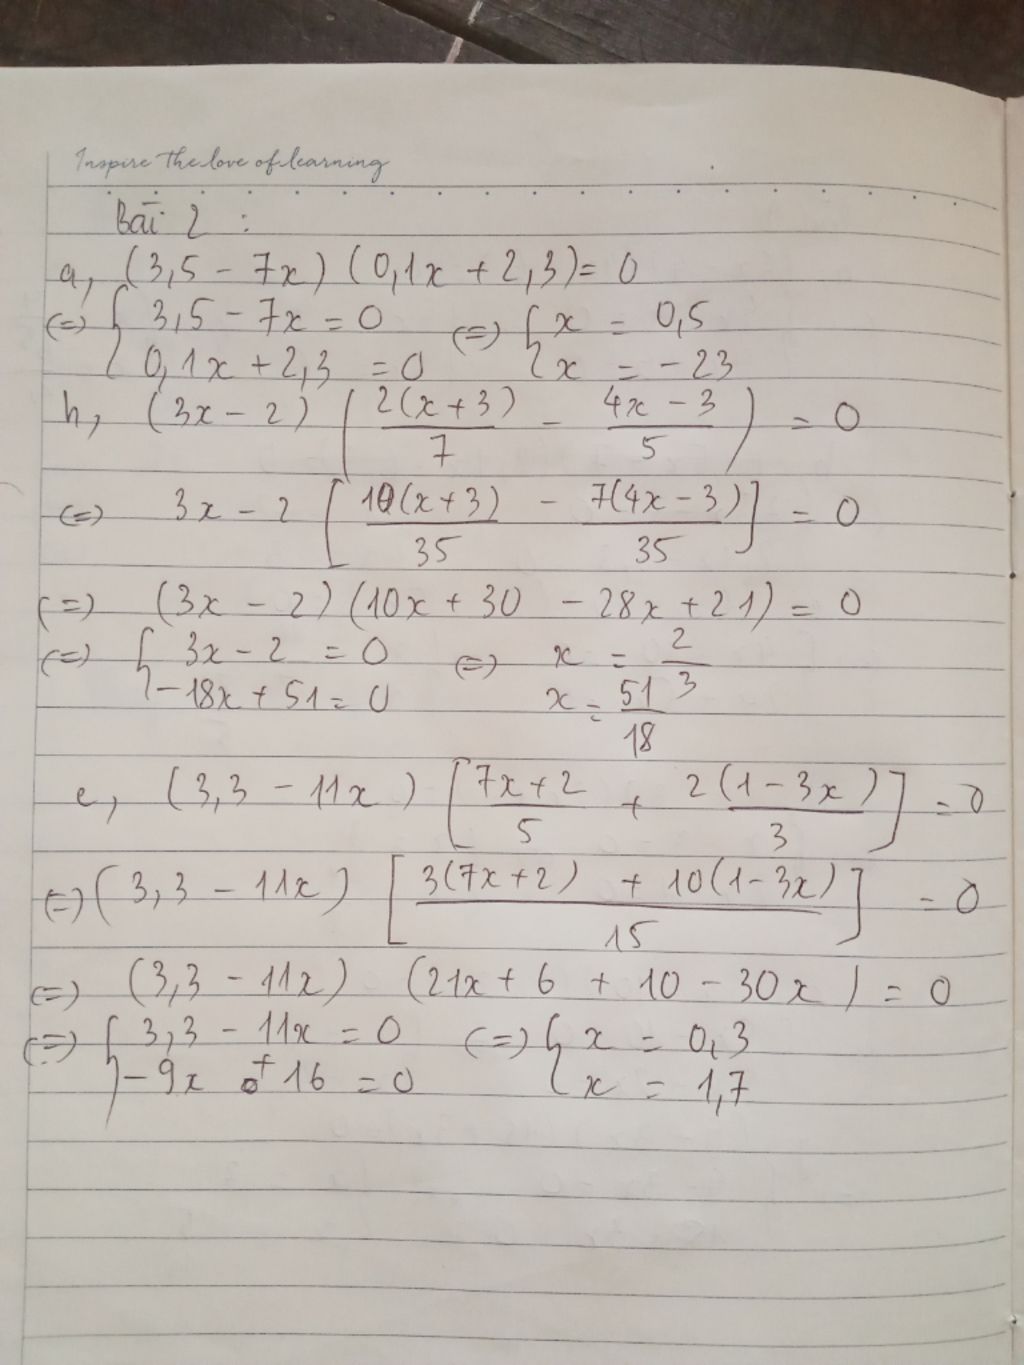 Inspire the love of learning
Bài 2 :
a, (3,5 - 7x) (0,1x + 2,3) = 0
(=) { 3,5 - 7x = 0 (=) { x = 0,5
0,1x + 2,3 = 0 x = -23
h, (3x - 2) ( 2(x + 3)/7 - 4x - 3/5 ) = 0
(=) 3x - 2 [ 10(x + 3)/35 - 7(4x - 3)/35 ] = 0
(=) (3x - 2) (10x + 30 - 28x + 21) = 0
(=) { 3x - 2 = 0 (=) x = 2/3
-18x + 51 = 0 x = 51/18
e, (3,3 - 11x) [ 7x + 2/5 + 2(1 - 3x)/3 ] = 0
(=) (3,3 - 11x) [ 3(7x + 2) + 10(1 - 3x)/15 ] = 0
(=) (3,3 - 11x) (21x + 6 + 10 - 30x) = 0
(=) { 3,3 - 11x = 0 (=) { x = 0,3
-9x + 16 = 0 x = 1,7